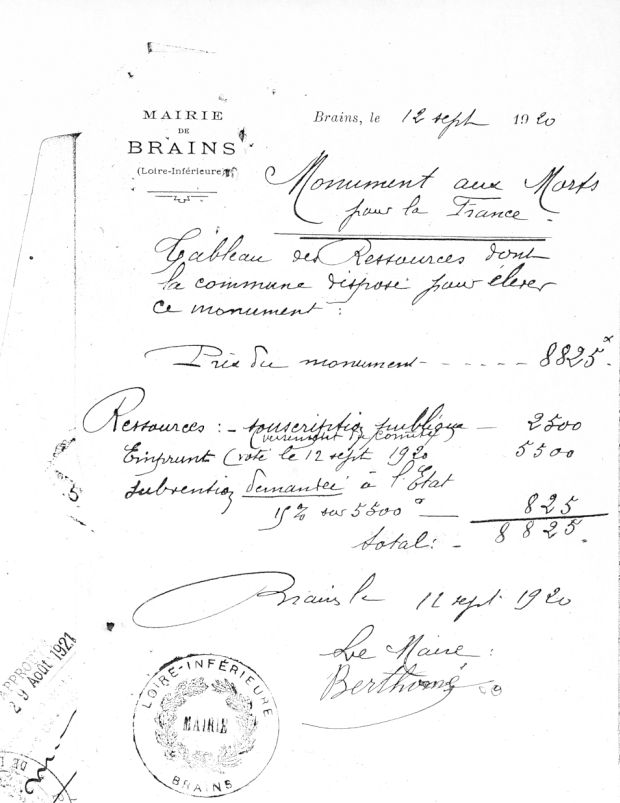 MAIRIE
DE
BRAINS
(Loire-Inférieure)
Brains, le 12 sept 1920
Monument aux Morts
pour la France.
Tableau des Ressources dont
la commune dispose pour élever
ce monument :
Prix du monument - - - - - 8825
Ressources : - souscription publique - 2500
(versement du comité)
Emprunt (voté le 12 sept 1920 5500
subvention demandée à l'Etat
15% sur 5500 — 825
total : - 8825.
Brains le 12 sept 1920
Le Maire :
LOIRE-INFÉRIEURE
MAIRIE
BRAINS
29 Août 1921